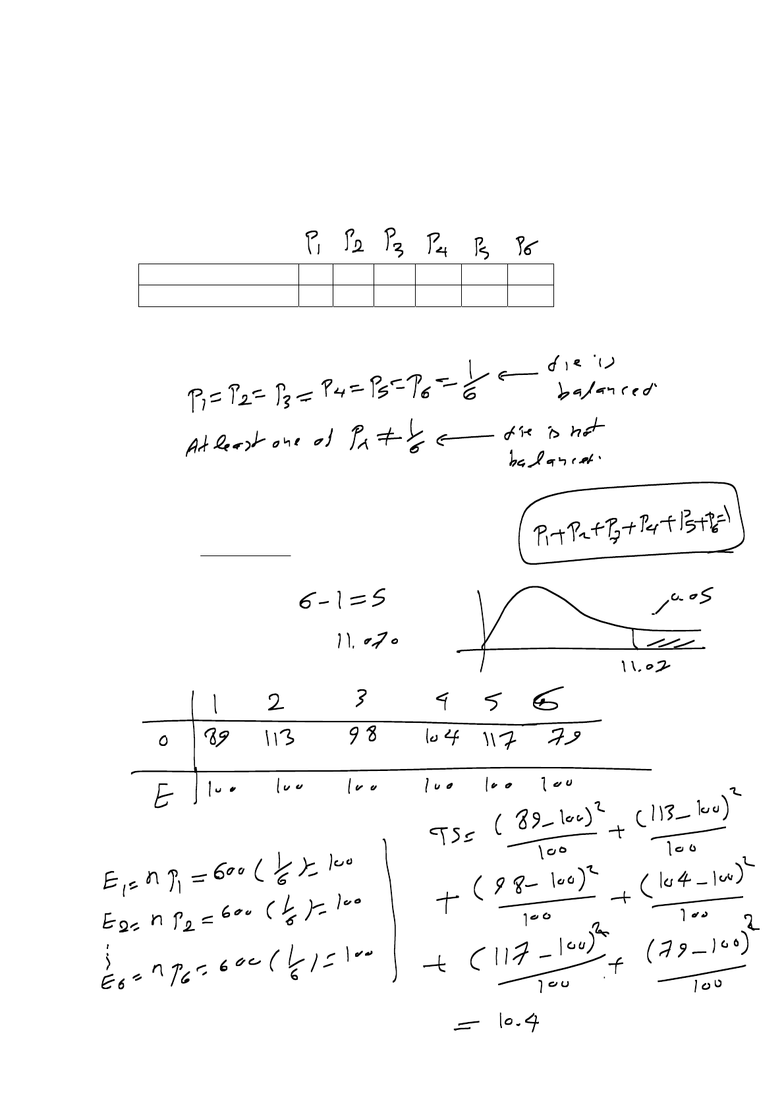 P1 P2 P3 P4 P5 P6
P1 = P2 = P3 = P4 = P5 = P6 = 1/6 ← die is balanced.
At least one of Pi ≠ 1/6 ← die is not balanced.
P1+P2+P3+P4+P5+P6=1
6-1=5
0.05
11.070
11.07
1 2 3 4 5 6
O 89 113 98 104 117 79
E 100 100 100 100 100 100
E1 = n P1 = 600 (1/6) = 100
E2 = n P2 = 600 (1/6) = 100
⋮
E6 = n P6 = 600 (1/6) = 100
TS = (89-100)²/100 + (113-100)²/100
+ (98-100)²/100 + (104-100)²/100
+ (117-100)²/100 + (79-100)²/100
= 10.4